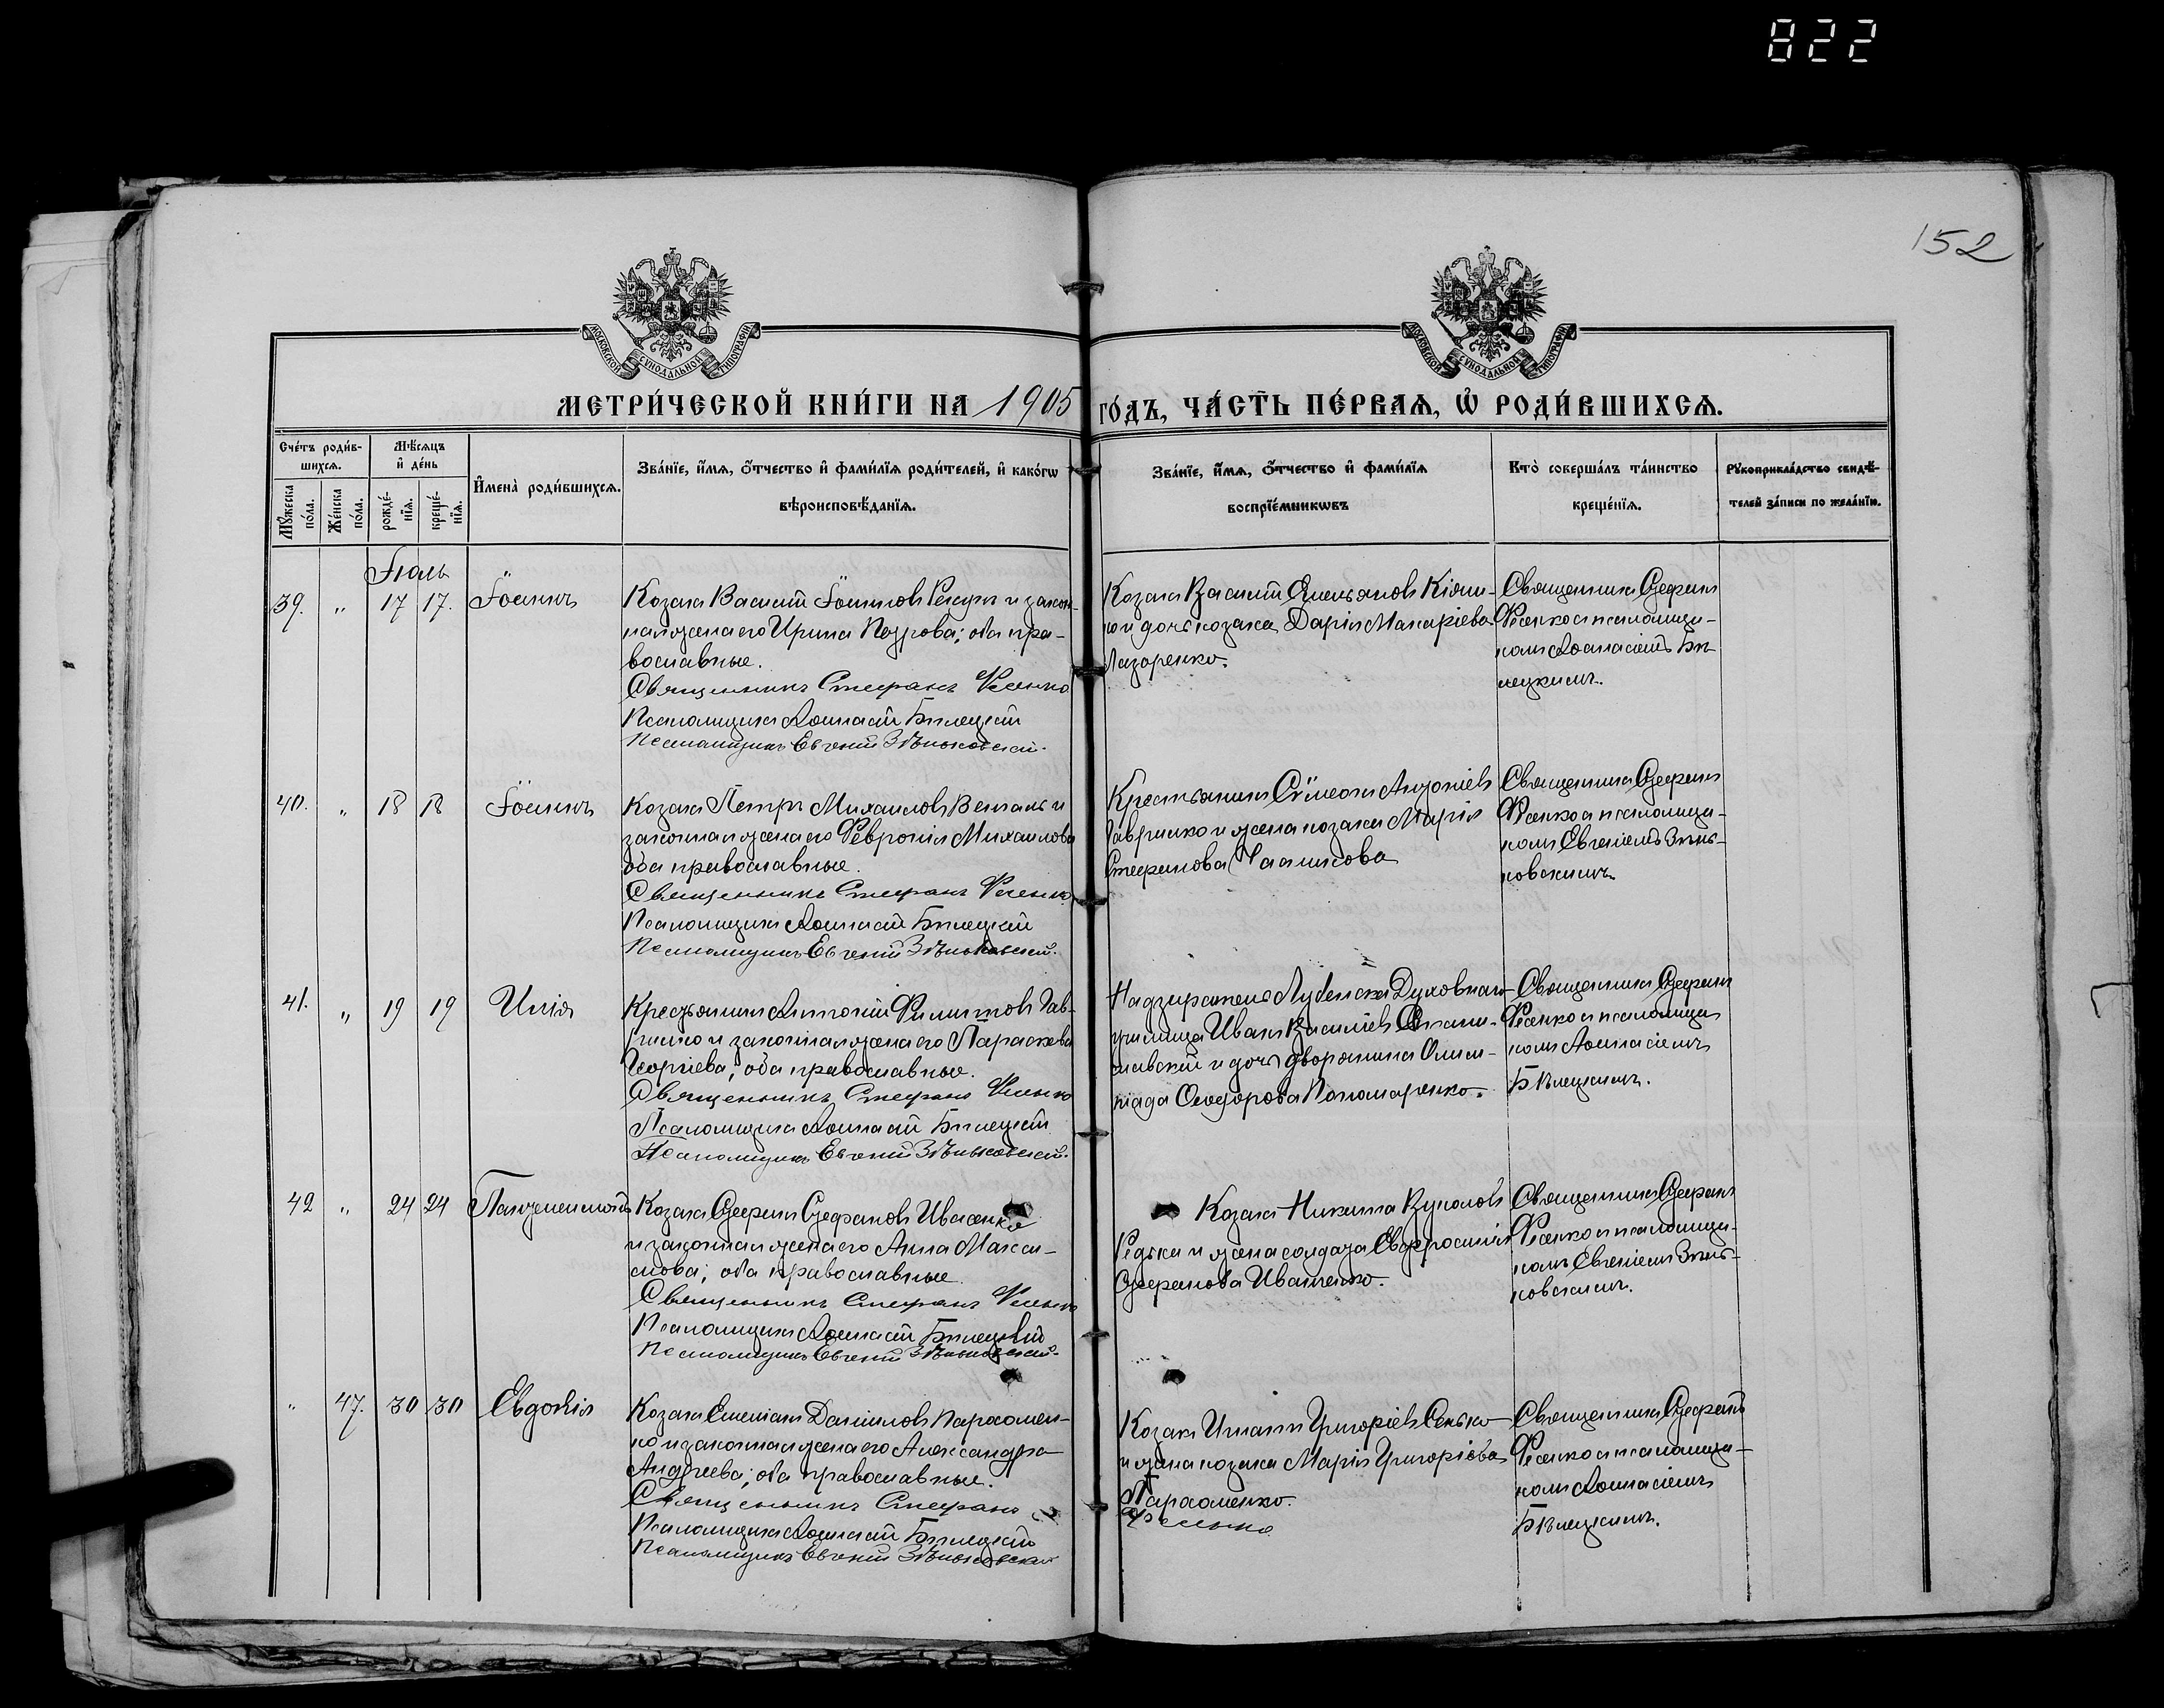 822
152
МОСКОВСКОЙ СУНОДАЛЬНОЙ ТИПОГРАФІИ
МОСКОВСКОЙ СУНОДАЛЬНОЙ ТИПОГРАФІИ
МЕТРИ́ЧЕСКОЙ КНИ́ГИ НА 1905 ГО́ДЪ, ЧА́СТЬ ПЕ́РВАЯ, Ѡ҆ РОДИ́ВШИХСЯ.
Сче́тъ роди́в-
шихся.
Мѣ́сяцъ
и҆ де́нь
Мꙋ́жеска
по́ла.
Же́нска
по́ла.
рожде́-
нїя.
креще́-
нїя.
И҆мена̀ роди́вшихся.
Зва́нїе, и҆́мя, ѻ҆́тчество и҆ фами́лїя роди́телей, и҆ како́гѡ
вѣроисповѣ́данїя.
Зва́нїе, и҆́мя, ѻ҆́тчество и҆ фами́лїя
воспрїе́мникѡвъ
Кто̀ соверша́лъ та́инство
креще́нїя.
Рꙋкоприкла́дство свидѣ́-
телей за́писи по жела́нїю.
Іюль
39. „ 17 17. Іоаннъ
Козакъ Василій Іоанновъ и закон-
ная жена его Ирина Петрова; оба пра-
вославные.
Священникъ Стефанъ Фесенко
Псаломщикъ Аѳанасій Бѣлецкій
Псаломщикъ Евгеній Зѣньковскій.
Козакъ Василій Емельяновъ
и дочь козака Дарія Макаріева
Лазоренко.
Священникъ Стефанъ
Фесенко съ псаломщи-
комъ Аѳанасіемъ Бѣ-
лецкимъ.
40. „ 18 18 Іоаннъ
Козакъ Петръ Михаиловъ и
законная жена его Феврониія Михаилова
оба православные.
Священникъ Стефанъ Фесенко
Псаломщикъ Аѳанасій Бѣлецкій
Псаломщикъ Евгеній Зѣньковскій.
Крестьянинъ Сѵмеонъ Антоніевъ
Гавришко и жена козака Марія
Стефанова
Священникъ Стефанъ
Фесенко съ псаломщи-
комъ Евгеніемъ Зѣнь-
ковскимъ.
41. „ 19 19 Илія
Крестьянинъ Антоній Филиповъ Гав-
ришко и законная жена его Параскева
Георгіева, оба православные.
Священникъ Стефанъ Фесенко
Псаломщикъ Аѳанасій Бѣлецкій
Псаломщикъ Евгеній Зѣньковскій.
Надзиратель Лубенскаго Духовнаго
училища Иванъ Василіевъ
и дочь дворянина Олим-
піада Ѳеодорова Пономаренко.
Священникъ Стефанъ
Фесенко съ псаломщи
комъ Аѳанасіемъ
Бѣлецкимъ.
42 „ 24 24 Пантелеимонъ
Козакъ Стефанъ Стефановъ Иващенко
и законная жена его Анна Макси-
мова; оба православные
Священникъ Стефанъ Фесенко
Псаломщикъ Аѳанасій Бѣлецкій
Псаломщикъ Евгеній Зѣньковскій.
Козакъ Никита Вуколовъ
Редька и жена солдата Евфросинія
Стефанова Иващенко.
Священникъ Стефанъ
Фесенко съ псаломщи-
комъ Евгеніемъ Зѣнь-
ковскимъ.
„ 47. 30 30 Евдокія
Козакъ Даніиловъ Парѳомен-
ко и законная жена его Александра
Андреева; оба православные.
Священникъ Стефанъ
Псаломщикъ Аѳанасій Бѣлецкій
Псаломщикъ Евгеній Зѣньковскій
Козакъ Игнатій Григоріевъ Сенько
и жена козака Марія Григоріева
Парѳоменко.
Фесенко
Священникъ Стефанъ
Фесенко съ псаломщи-
комъ Аѳанасіемъ
Бѣлецкимъ.